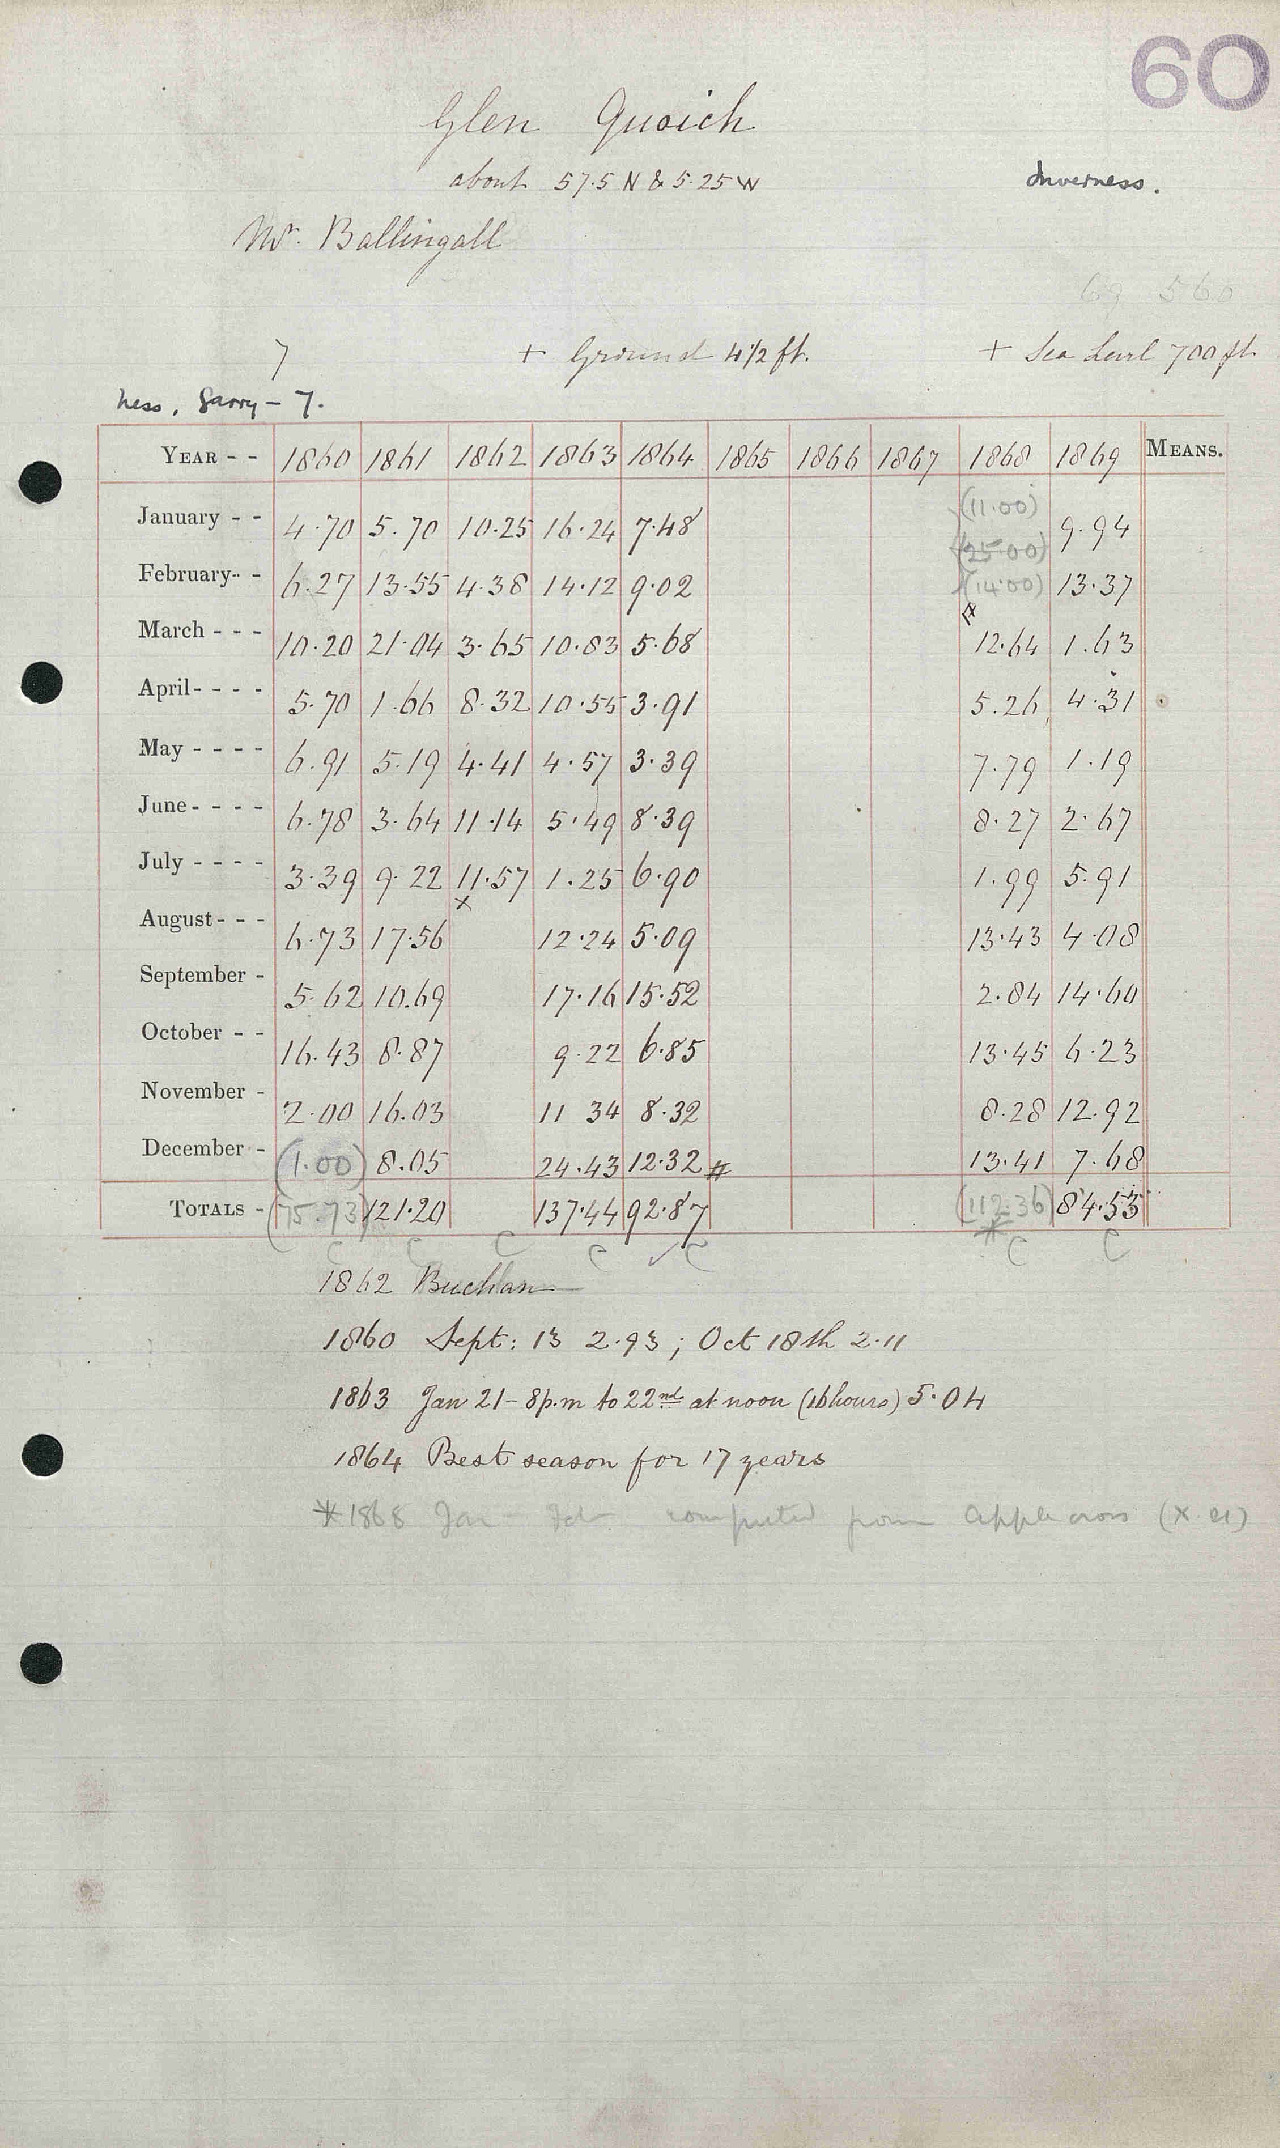 60
Glen Quoich
about 57.5 N & 5.25 W
Inverness.
Mr. Ballingall
69 560
7 + Ground 4 1/2 ft. + Sea Level 700 ft.
Ness, Garry - 7.
YEAR - - 1860 1861 1862 1863 1864 1865 1866 1867 1868 1869 MEANS.
January - - 4.70 5.70 10.25 16.24 7.48 (11.00) 9.94
(25.00)
February- - 6.27 13.55 4.38 14.12 9.02 (14.00) 13.37
March - - - 10.20 21.04 3.65 10.83 5.68 12.64 1.63
April- - - - 5.70 1.66 8.32 10.55 3.91 5.26 4.31
May - - - - 6.91 5.19 4.41 4.57 3.39 7.79 1.19
June- - - - 6.78 3.64 11.14 5.49 8.39 8.27 2.67
July - - - - 3.39 9.22 11.57 1.25 6.90 1.99 5.91
x
August- - - 6.73 17.56 12.24 5.09 13.43 4.08
September - 5.62 10.69 17.16 15.52 2.84 14.60
October - - 16.43 8.87 9.22 6.85 13.45 6.23
November - 2.00 16.03 11 34 8.32 8.28 12.92
December - (1.00) 8.05 24.43 12.32 # 13.41 7.68
TOTALS - (75.73) 121.20 137.44 92.87 (112.36) 84.53
*
C C C C ✓ C C C
1862 Buchan
1860 Sept: 13 2.93 ; Oct 18th 2.11
1863 Jan 21 - 8 p.m to 22nd at noon (16 hours) 5.04
1864 Best season for 17 years
* 1868 Jan - Feb computed from Applecross